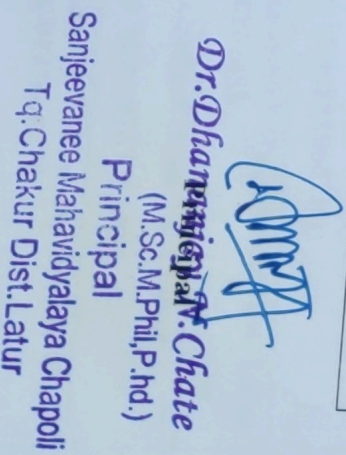 Dr.Dhananjay N.Chate
Principal
(M.Sc.M.Phil,P.hd.)
Principal
Sanjeevanee Mahavidyalaya Chapoli
Tq.Chakur Dist.Latur